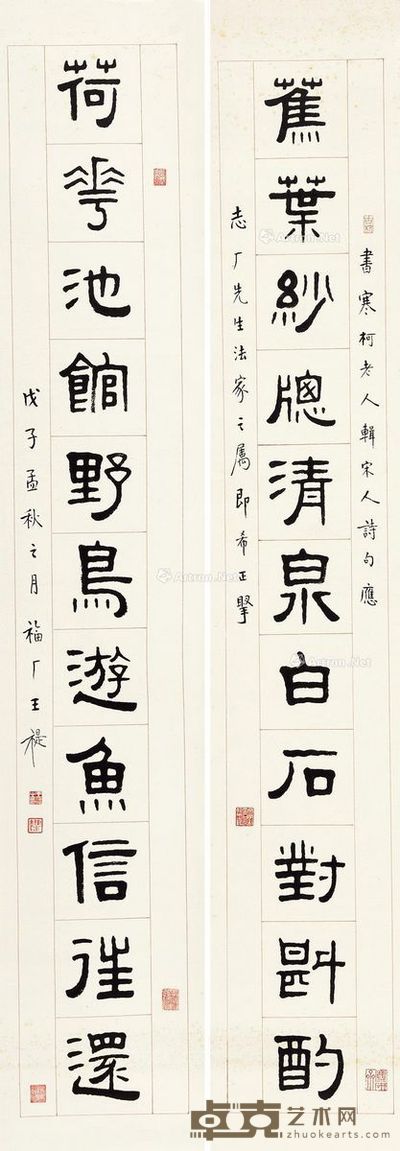 書寒柯老人輯宋人詩句應
蕉葉紗牕清泉白石對斟酌
志厂先生法家之屬即希正擘
荷華池館野鳥游魚信往還
戊子孟秋之月福厂王禔
Artron.Net
卓克艺术网
zhuokearts.com